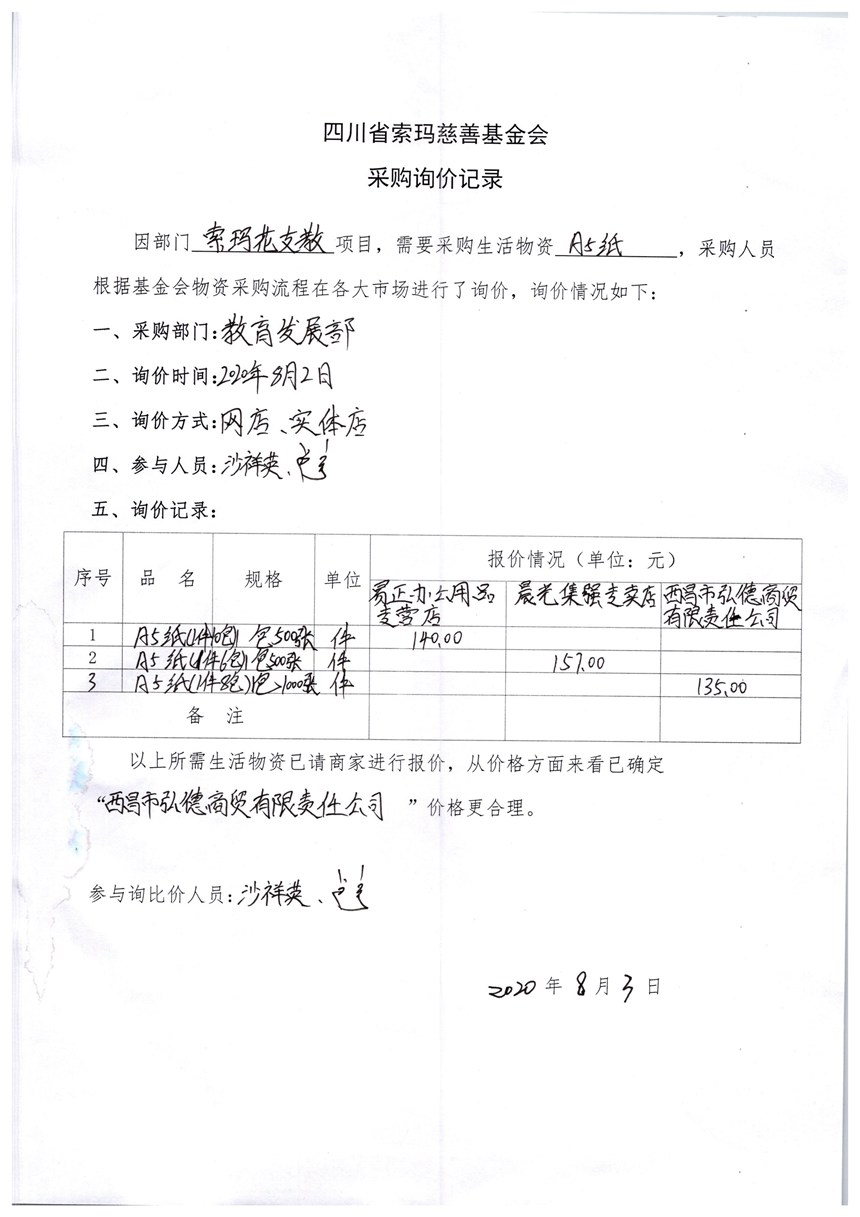 四川省索玛慈善基金会
采购询价记录
因部门 索玛花支教 项目，需要采购生活物资 A5纸 ，采购人员
根据基金会物资采购流程在各大市场进行了询价，询价情况如下：
一、采购部门：教育发展部
二、询价时间：2020年8月2日
三、询价方式：网店、实体店
四、参与人员：沙祥英、
五、询价记录：
序号 品 名 规格 单位 报价情况（单位：元）
易正办公用品专营店 晨光集强专卖店 西昌市弘德商贸有限责任公司
1 A5纸(1件10包) 1包500张 件 140.00
2 A5纸(1件6包) 1包500张 件 157.00
3 A5纸(1件8包) 1包>1000张 件 135.00
备 注
以上所需生活物资已请商家进行报价，从价格方面来看已确定
“西昌市弘德商贸有限责任公司 ”价格更合理。
参与询比价人员：沙祥英、
2020年8月3日